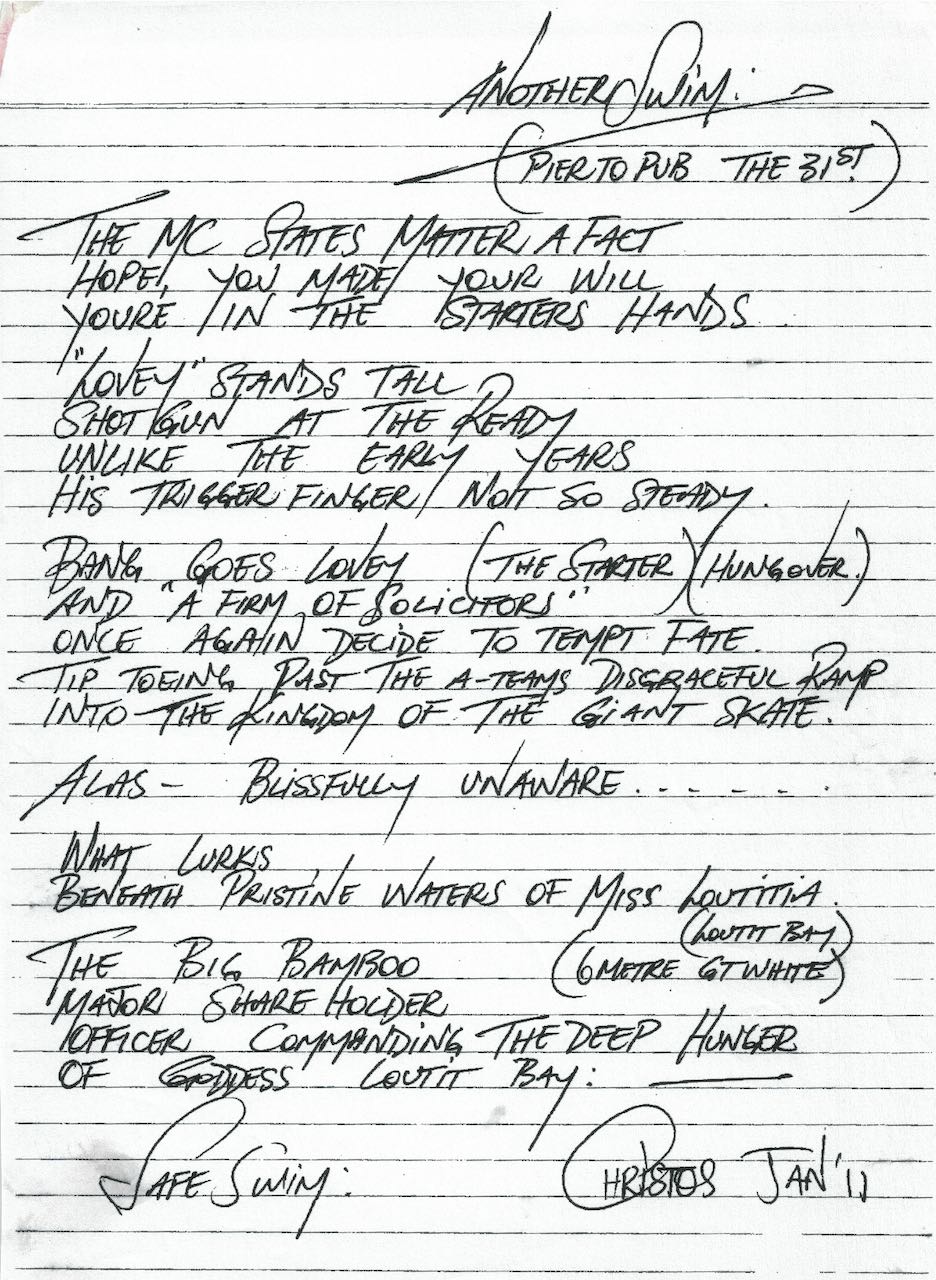 ANOTHER SWIM.
(PIER TO PUB THE 31ST.)
THE MC STATES MATTER A FACT
HOPE, YOU MADE YOUR WILL
YOURE IN THE STARTERS HANDS.
"LOVEY" STANDS TALL
SHOTGUN AT THE READY
UNLIKE THE EARLY YEARS
HIS TRIGGER FINGER NOT SO STEADY.
BANG GOES LOVEY (THE STARTER) (HUNGOVER.)
AND "A FIRM OF SOLICITORS"
ONCE AGAIN DECIDE TO TEMPT FATE.
TIP TOEING PAST THE A-TEAMS DISGRACEFUL RAMP
INTO THE KINGDOM OF THE GIANT SKATE.
ALAS - BLISSFULLY UNAWARE.......
WHAT LURKS
BENEATH PRISTINE WATERS OF MISS LOUTITIA.
(LOUTIT BAY)
THE BIG BAMBOO (6 METRE GT WHITE)
MAJOR SHARE HOLDER
OFFICER COMMANDING THE DEEP HUNGER
OF GODDESS LOUTIT BAY:
SAFE SWIM. CHRISTOS JAN '11